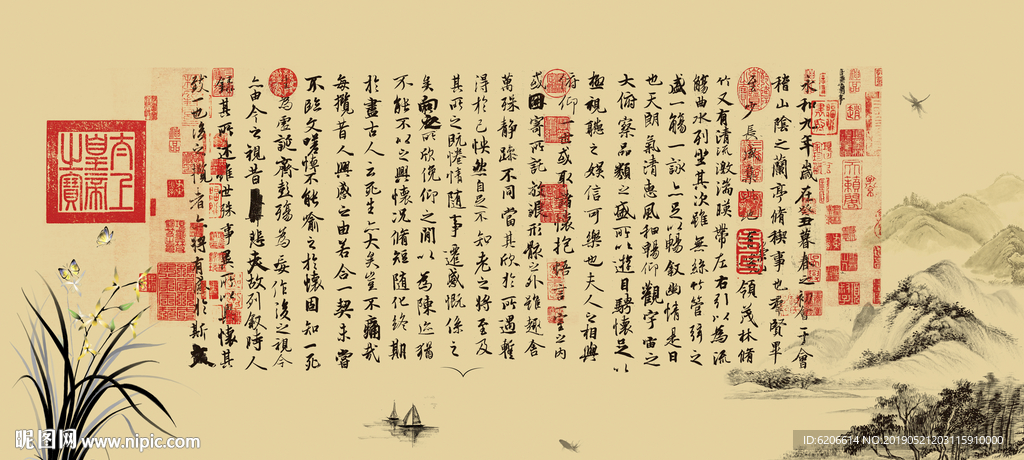 永和九年歲在癸丑暮春之初會于會
稽山陰之蘭亭脩稧事也羣賢畢
至少長咸集此地有崇山峻領茂林脩
竹又有清流激湍暎帶左右引以為流
觴曲水列坐其次雖無絲竹管弦之
盛一觴一詠亦足以暢敘幽情是日
也天朗氣清惠風和暢仰觀宇宙之
大俯察品類之盛所以遊目騁懷足以
極視聽之娛信可樂也夫人之相與
俯仰一世或取諸懷抱悟言一室之內
或因寄所託放浪形骸之外雖趣舍
萬殊靜躁不同當其欣於所遇暫
得於己怏然自足不知老之將至及
其所之既惓情隨事遷感慨係之
矣向之所欣俛仰之間以為陳迹猶
不能不以之興懷況脩短隨化終期
於盡古人云死生亦大矣豈不痛哉
每攬昔人興感之由若合一契未嘗
不臨文嗟悼不能喻之於懷固知一死
生為虛誕齊彭殤為妄作後之視今
亦由今之視昔悲夫故列敘時人
錄其所述雖世殊事異所以興懷其
致一也後之攬者亦將有感於斯文
太上皇帝之寶
昵图网 www.nipic.com
ID:6206614 NO:20190521203115910000